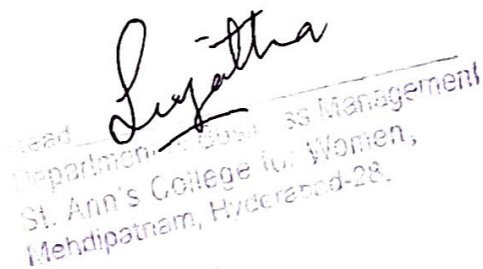 Sujatha
Head
Department of Business Management
St. Ann's College for Women,
Mehdipatnam, Hyderabad-28.